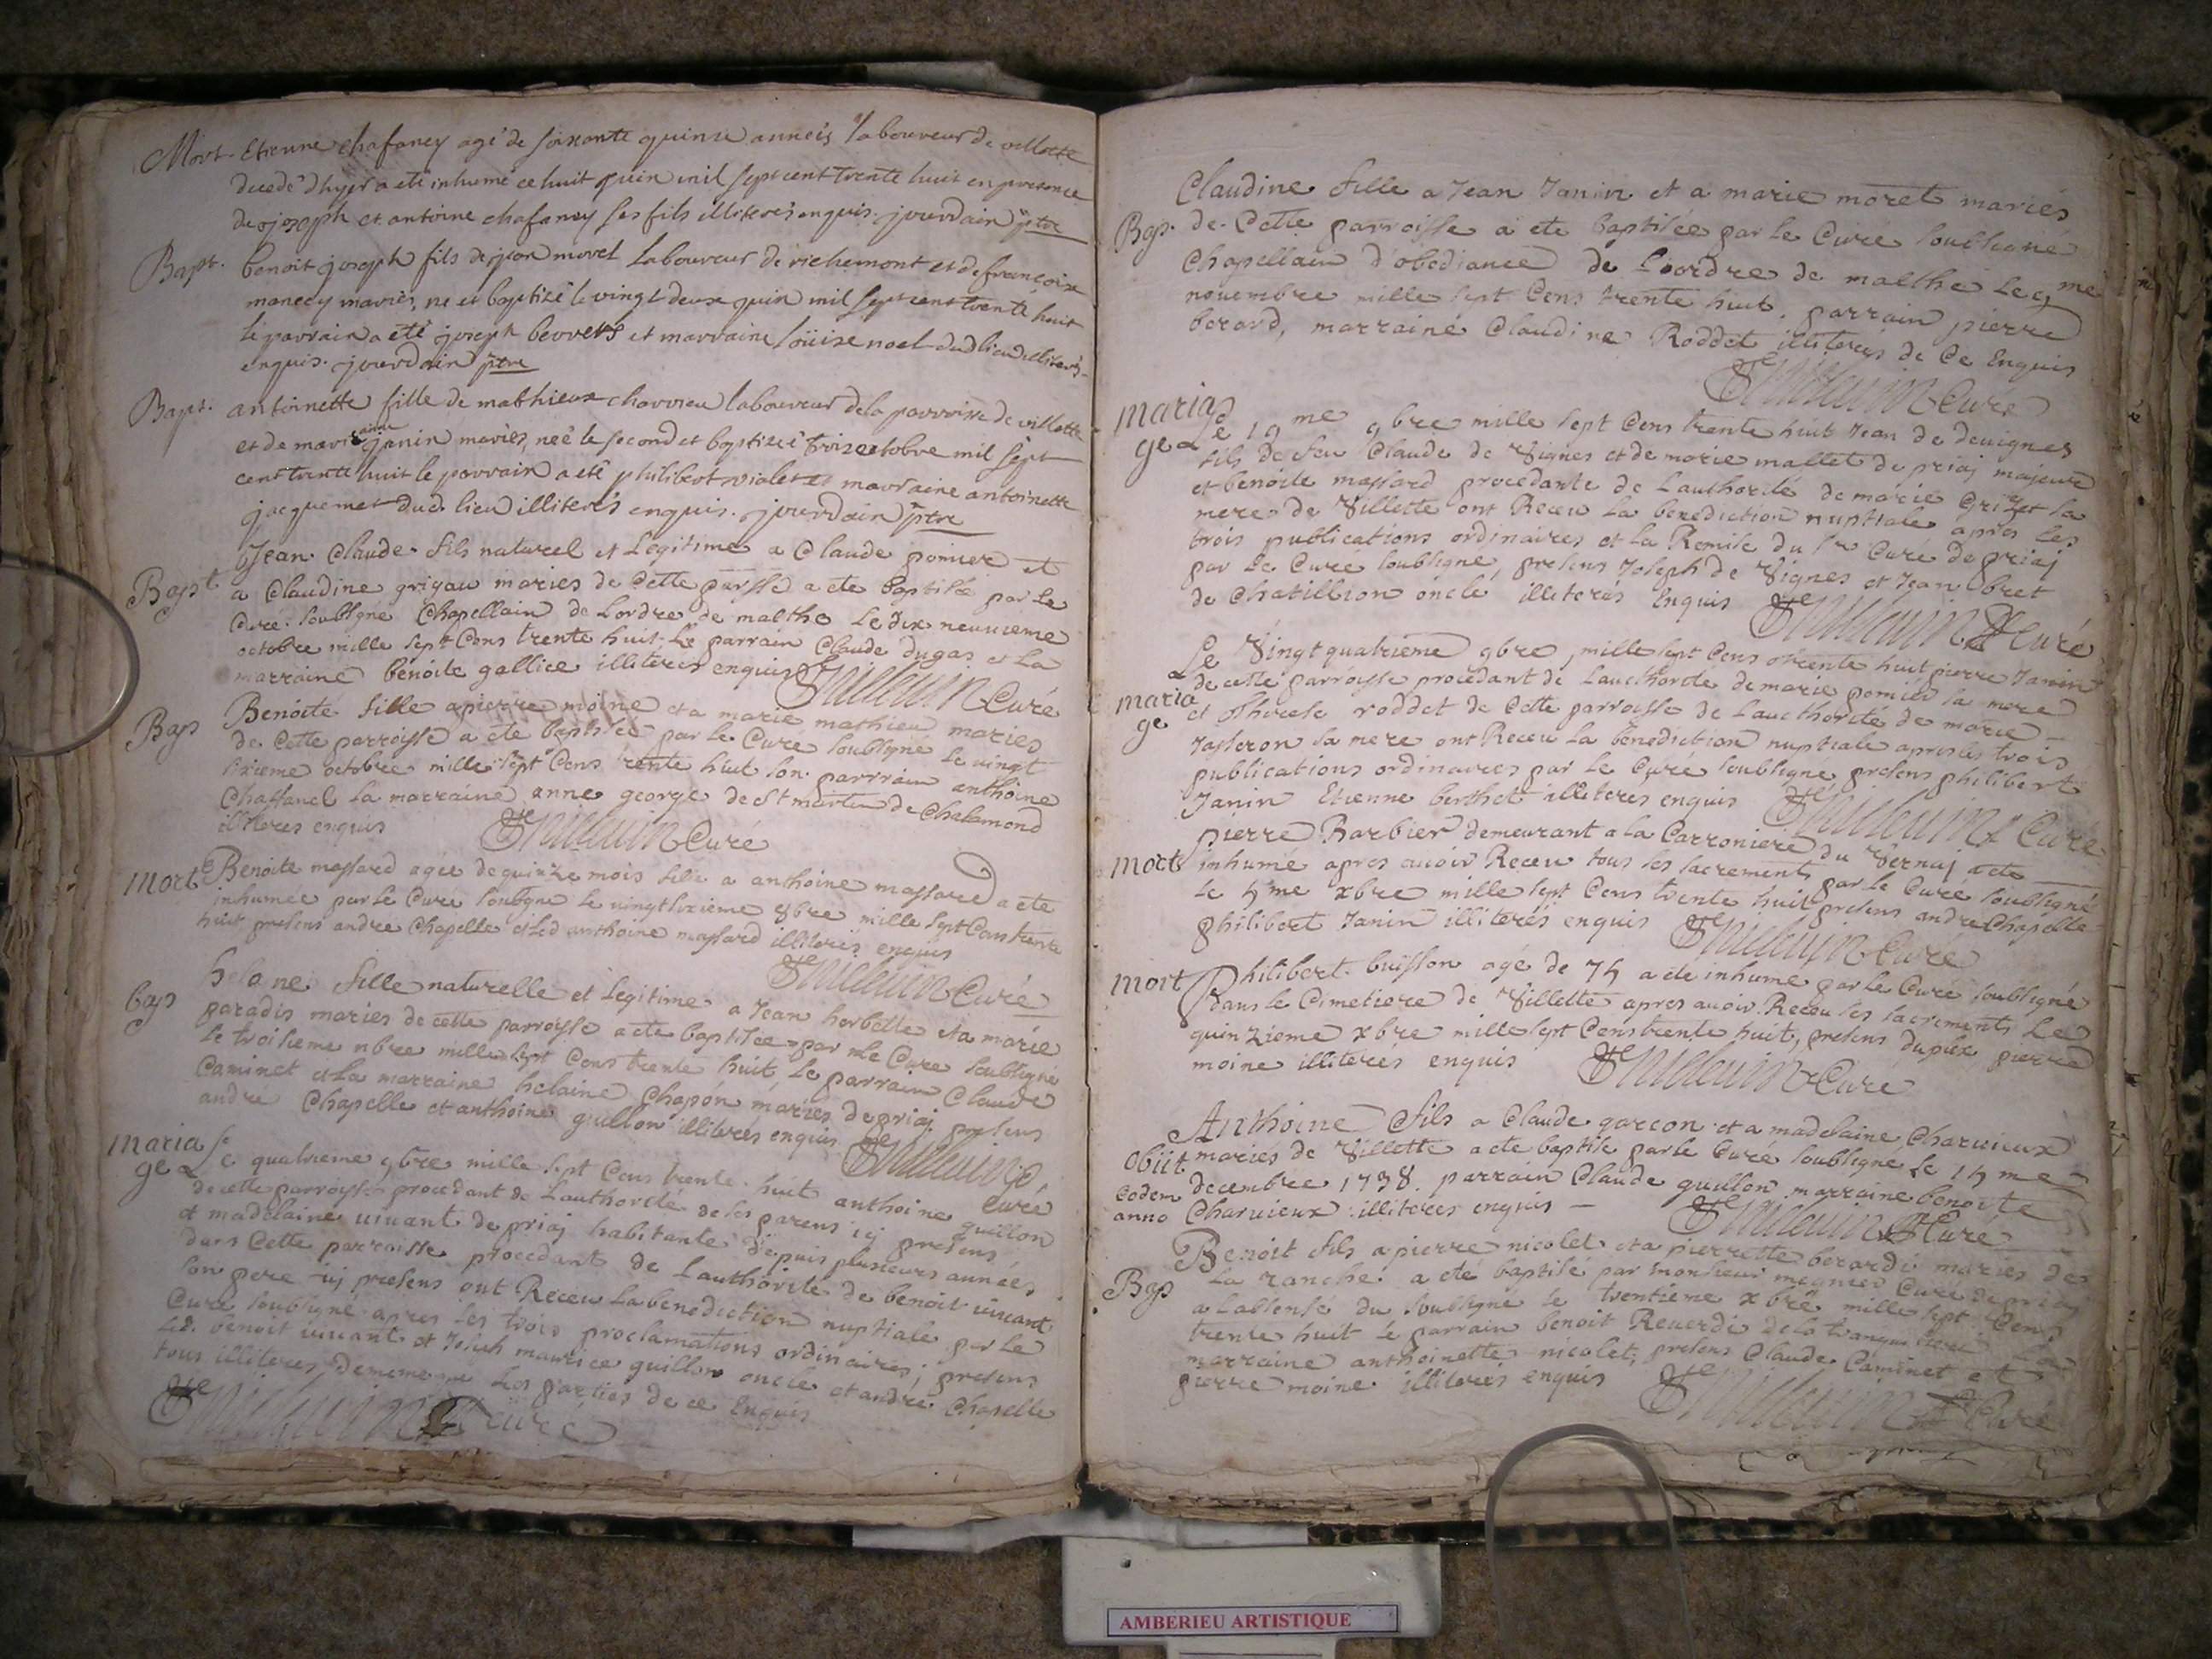 Mort. Etienne chafaney agé de soixante quinze anneés laboureur de villette
decedé d'hyer a eté inhumé ce huit juin mil sept cent trente huit en presence
de joseph et antoine chafaney ses fils illiterés enquis. jourdain ptre
Bapt. benoit joseph fils de jean morel laboureur de richemont et de françoise
manecy mariés, ne et baptizé le vingt deux juin mil sept cent trente huit
le parrain a eté joseph et marraine loüise noel dud lieu illiterés
enquis. jourdain ptre
Bapt. antoinette fille de mathieux charvieu laboureur de la parroisse de villette
et de marie anne janin mariés, neé le second et baptizeé trois octobre mil sept
cent trente huit le parrain a eté philibert violet et marraine antoinette
jacquemet dud. lieu illiterés enquis. jourdain ptre
Jean Claude fils naturel et Legitime a Claude pomier et
Bapt. a Claudine grigau maries de Cette parsse a ete baptisée par Le
Curé soubsigne Chapellain de Lordre de malthe Le dix neuvieme
octobre mille sept Cens trente huit. Le parrain Claude dugas et La
marraine benoite gallice illiteres enquis Curé
Bap Benoite fille a pierre moine et a marie mathieu maries
de Cette parroisse a ete baptisée par Le Curé soubsigné Le vingt
sixieme octobre mille sept Cens trente huit son parrain anthoine
Chaffanel La marraine anne george de St martin de Chalamond
illiteres enquis Curé
Mort Benoite massard agee de quinze mois fille a anthoine massard a ete
inhumée par Le Curé soubsigne Le vingt sixieme 8bre mille sept Cens trente
huit presens andré Chapelle et Led anthoine massard illiterés enquis
Curé
bap helene fille naturelle et Legitime a Jean herbette et a marie
paradis maries de cette parroisse a ete baptisée par Le Curé soubsigné
le troisieme nbre mille sept Cens trente huit Le parrain Claude
Caminet et La marraine helaine Chapon mariés de priaj presens
andré Chapelle et anthoine guillon illiteres enquis
Curé
maria
ge Le quatrieme 9bre mille sept Cens trente huit anthoine guillon
de cette parroisse procedant de Lauthorité de ses parens icj presens
et madelaine vivant de priaj habitante depuis plusieurs années
dans Cette parroisse procedant de Lauthorité de benoit vivant
son pere icj presens ont Receu La benediction nuptiale par Le
Curé soubsigné apres les trois proclamations ordinaires; presens
Led. benoit vivant et Joseh maurice guillon oncle et andré Chapelle
tous illiteres de meme que Les parties de ce Enquis
Curé
Claudine fille a Jean Janin et a marie moret mariés
Bap. de Cette parroisse a ete baptisée par Le Curé soubsigné
Chapellain d'obediance de Loordre de malthe Le 9me
novembre mille sept Cens trente huit. parrain pierre
berard, marraine Claudine Roddet illiterés de Ce Enquis
Curé
maria
ge Le 19me 9bre mille sept Cens trente huit Jean de devignes
fils de feu Claude de Vignes et de marie mallet de priaj majeure
et benoite massard procedante de Lauthorité de marie Grizet sa
mere de Villette ont Receu La benediction nuptiale apres Les
trois publications ordinaires et La Remise du Sr Curé de priaj
par Le Curé soubsigné, presens Joseph de Vignes et Jean obret
de Chatillion oncle illiterés Enquis Curé
Le Vingt quatrieme 9bre, mille sept Cens trente huit pierre Janin
de cette parroisse procedant de Laucthorité de marie pomier sa mere
maria
ge et Therese roddet de Cette parroisse de Laucthorité de marie
Jasseron sa mere ont Receu La benediction nuptiale apres les trois
publications ordinaires par Le Curé soubsigné presens philibert
Janin Etienne berthet illiterés enquis Curé
pierre Barbier demeurant a La Carroniere du Vernaj a ete
mort inhumé apres avoir Receu tous ses sacrements par Le Curé soubsigné
Le 5me xbre mille sept Cens trente huit presens andré Chapelle
philibert Janin illiterés enquis Curé
mort Philibert buisson agé de 75 a ete inhumé par Le Curé soubsigné
dans Le Cimetiere de Villette apres avoir Receu ses sacrements Le
quinzieme xbre mille sept Cens trente huit, presens duplex pierre
moine illiterés enquis Curé
Anthoine fils a Claude garçon et a madelaine Charvieux
obiit mariés de Villette a ete baptisé par Le Curé soubsigne Le 15me
eodem decembre 1738. parrain Claude guillon marraine benoite
anno Charvieux illiteres enquis Curé
Benoit fils a pierre nicolet et a pierrette berardi mariés de
Bap La ranche a eté baptisé par monsieur magnier Curé de priaj
a Labsensé du soubsigné Le trentieme xbre mille sept Cens
trente huit Le parrain benoit Reverdi de
marraine anthoinette nicolet, presens Claude Caminet et
pierre moine illiterés enquis Curé
AMBERIEU ARTISTIQUE